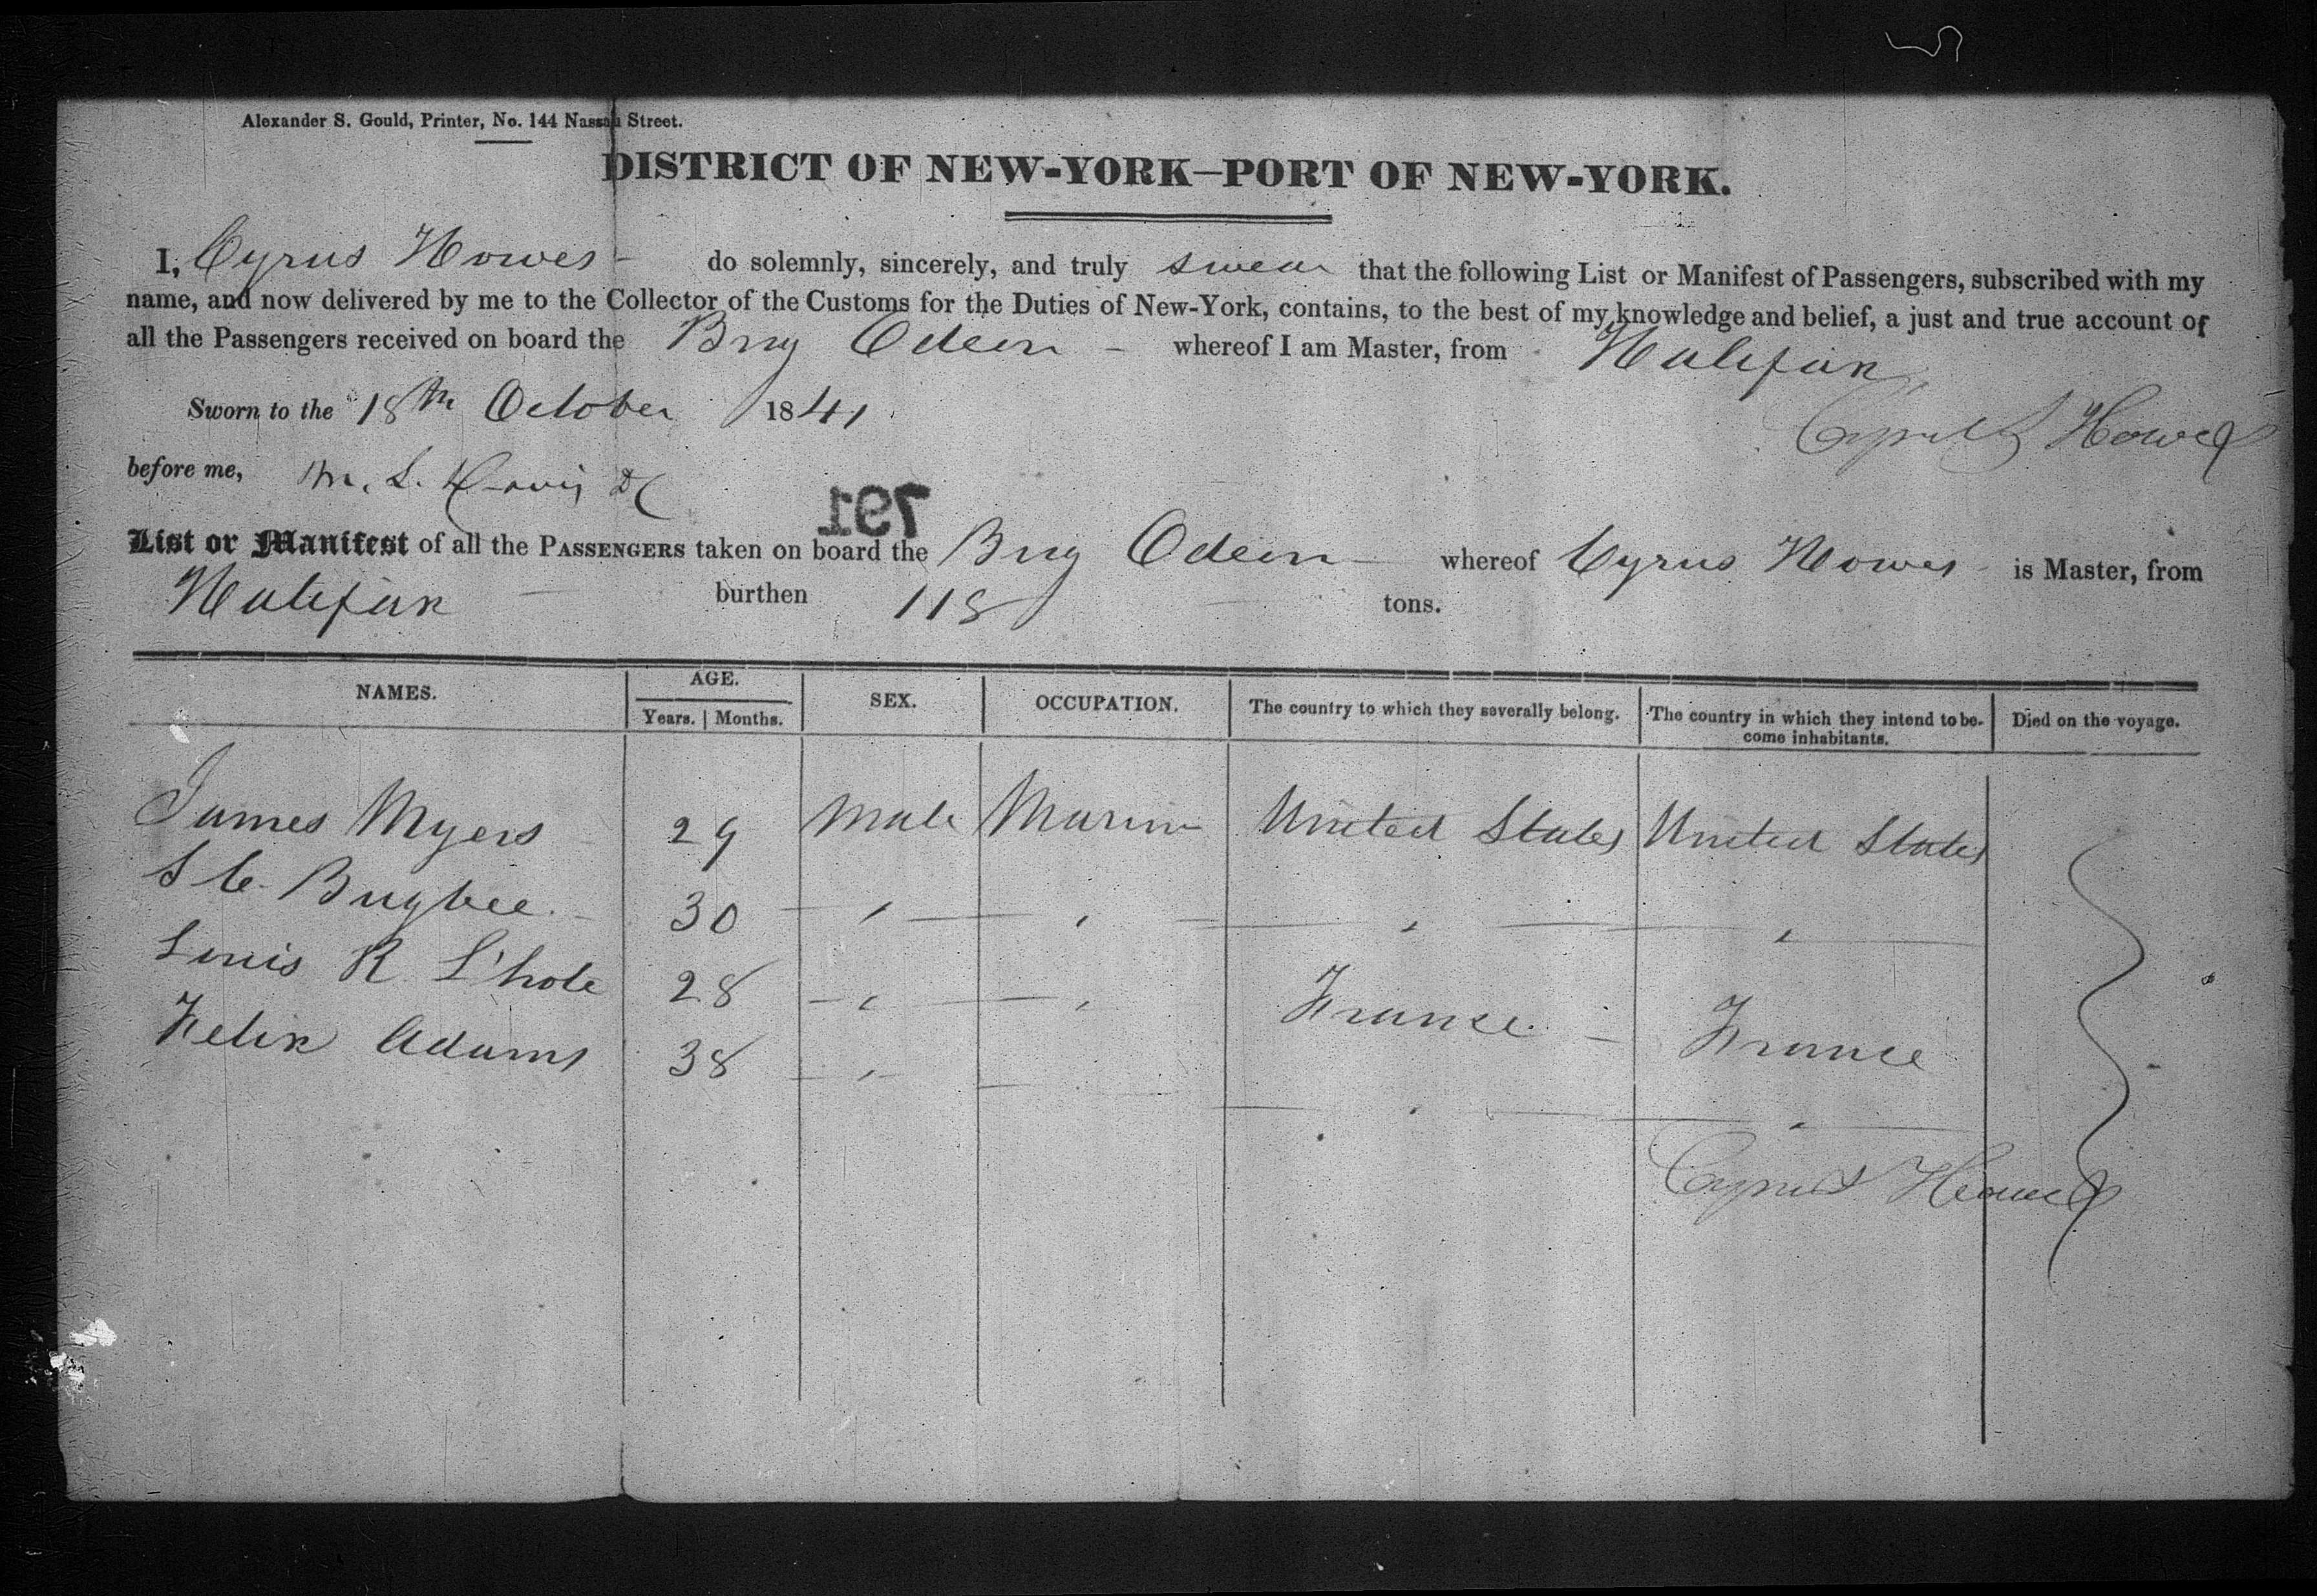 Alexander S. Gould, Printer, No. 144 Nassau Street.
DISTRICT OF NEW-YORK—PORT OF NEW-YORK.
I, Cyrus Howes - do solemnly, sincerely, and truly swear that the following List or Manifest of Passengers, subscribed with my
name, and now delivered by me to the Collector of the Customs for the Duties of New-York, contains, to the best of my knowledge and belief, a just and true account of
all the Passengers received on board the Brig Odeon - whereof I am Master, from Halifax
Sworn to the 18th October 1841
Cyrus Howes
before me, M. L. Davis
791
List or Manifest of all the PASSENGERS taken on board the Brig Odeon whereof Cyrus Howes is Master, from
Halifax burthen 118 tons.
NAMES. AGE. SEX. OCCUPATION. The country to which they severally belong. The country in which they intend to be-
come inhabitants. Died on the voyage.
Years. Months.
James Myers 29 Male Marin United States United States
S C Bugbee 30 " " " "
Louis R L'hote 28 " " France France
Felix Adams 38 " " "
Cyrus Howes